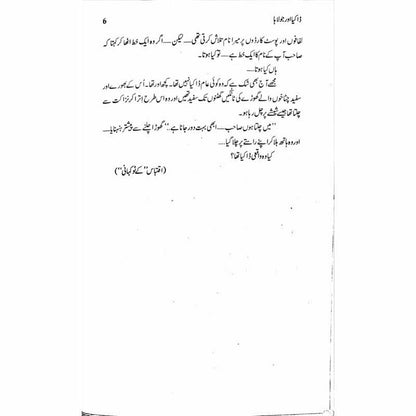 ڈاکیا اور جولاہا
6
لفافوں اور پوسٹ کارڈوں پر میرا نام تلاش کرتی تھی... لیکن... اگر وہ ایک خط اٹھا کر کہتا کہ
صاحب آپ کے نام کا ایک خط ہے... تو کیا ہوتا۔
ہاں کیا ہوتا...
مجھے آج بھی شک ہے کہ وہ کوئی عام ڈاکیا نہیں تھا۔ کچھ اور تھا۔ اُس کے بھورے اور
سفید چٹاخوں والے گھوڑے کی ٹانگیں گھٹنوں تک سفید تھیں اور وہ اس طرح اِترا کر نزاکت سے
چلتا تھا جیسے شیشے پر چل رہا ہو۔
"میں چلتا ہوں صاحب... ابھی بہت دور جانا ہے۔" گھوڑا چلنے سے پیشتر ہنہنایا...
اور وہ ہاتھ ہلا کر اپنے راستے پر چلا گیا...
کیا وہ واقعی ڈاکیا تھا؟
(اقتباس "کے ٹو کہانی")